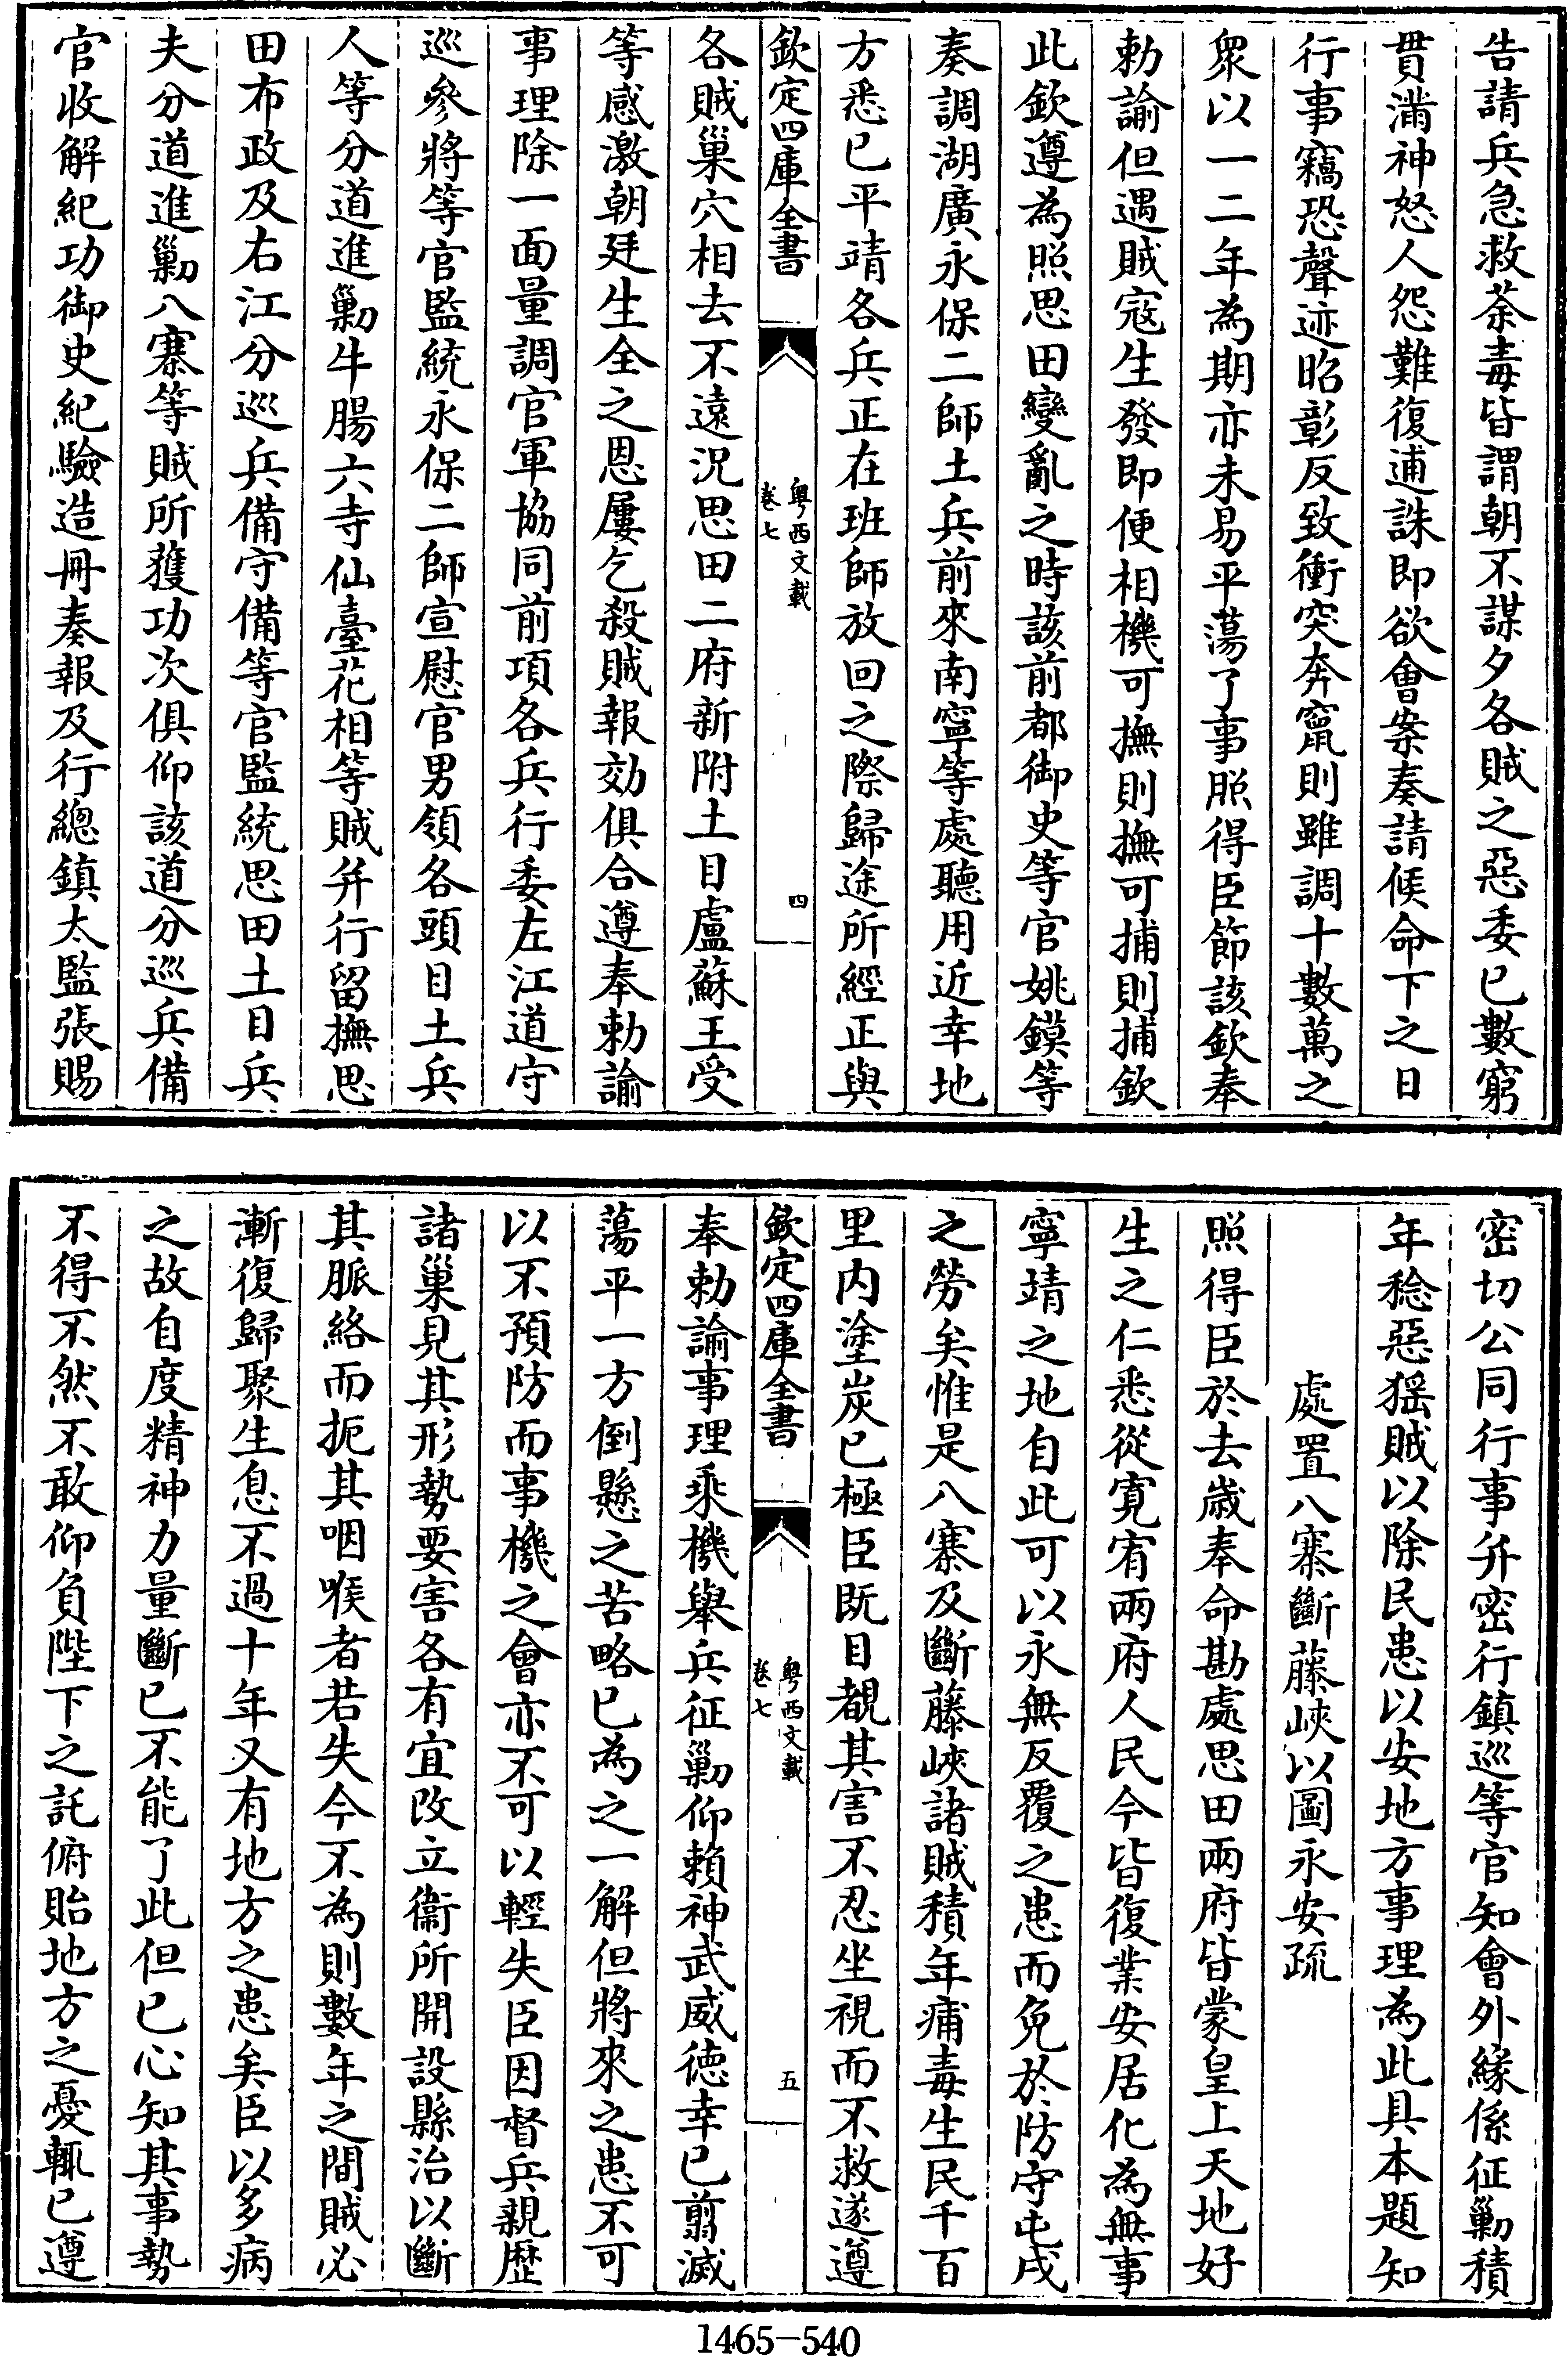 告請兵急救荼毒皆謂朝不謀夕各賊之惡委已數窮
貫滿神怒人怨難復逋誅即欲會案奏請候命下之日
行事竊恐聲迹昭彰反致衝突奔竄則雖調十數萬之
衆以一二年為期亦未易平蕩了事照得臣節該欽奉
勅諭但遇賊寇生發即便相機可撫則撫可捕則捕欽
此欽遵為照思田變亂之時該前都御史等官姚鏌等
奏調湖廣永保二師土兵前來南寧等處聽用近幸地
方悉已平靖各兵正在班師放回之際歸途所經正與
欽定四庫全書
粤西文載
卷七
四
各賊巢穴相去不遠況思田二府新附土目盧蘇王受
等感激朝廷生全之恩屢乞殺賊報効俱合遵奉勅諭
事理除一面量調官軍協同前項各兵行委左江道守
巡參將等官監統永保二師宣慰官男領各頭目土兵
人等分道進勦牛腸六寺仙臺花相等賊并行留撫思
田布政及右江分巡兵備守備等官監統思田土目兵
夫分道進勦八寨等賊所獲功次俱仰該道分巡兵備
官收解紀功御史紀驗造冊奏報及行總鎮太監張賜
密切公同行事并密行鎮巡等官知會外緣係征勦積
年稔惡猺賊以除民患以安地方事理為此具本題知
處置八寨斷藤峽以圖永安疏
照得臣於去歲奉命勘處思田兩府皆蒙皇上天地好
生之仁悉從寛宥兩府人民今皆復業安居化為無事
寧靖之地自此可以永無反覆之患而免於防守屯戍
之勞矣惟是八寨及斷藤峽諸賊積年痡毒生民千百
里内塗炭已極臣既目覩其害不忍坐視而不救遂遵
欽定四庫全書
粤西文載
卷七
五
奉勅諭事理乘機舉兵征勦仰賴神武威德幸已翦滅
蕩平一方倒懸之苦略已為之一解但將來之患不可
以不預防而事機之會亦不可以輕失臣因督兵親歴
諸巢見其形勢要害各有宜改立衞所開設縣治以斷
其脈絡而扼其咽喉者若失今不為則數年之間賊必
漸復歸聚生息不過十年又有地方之患矣臣以多病
之故自度精神力量斷已不能了此但已心知其事勢
不得不然不敢仰負陛下之託俯貽地方之憂輒已遵
1465-540